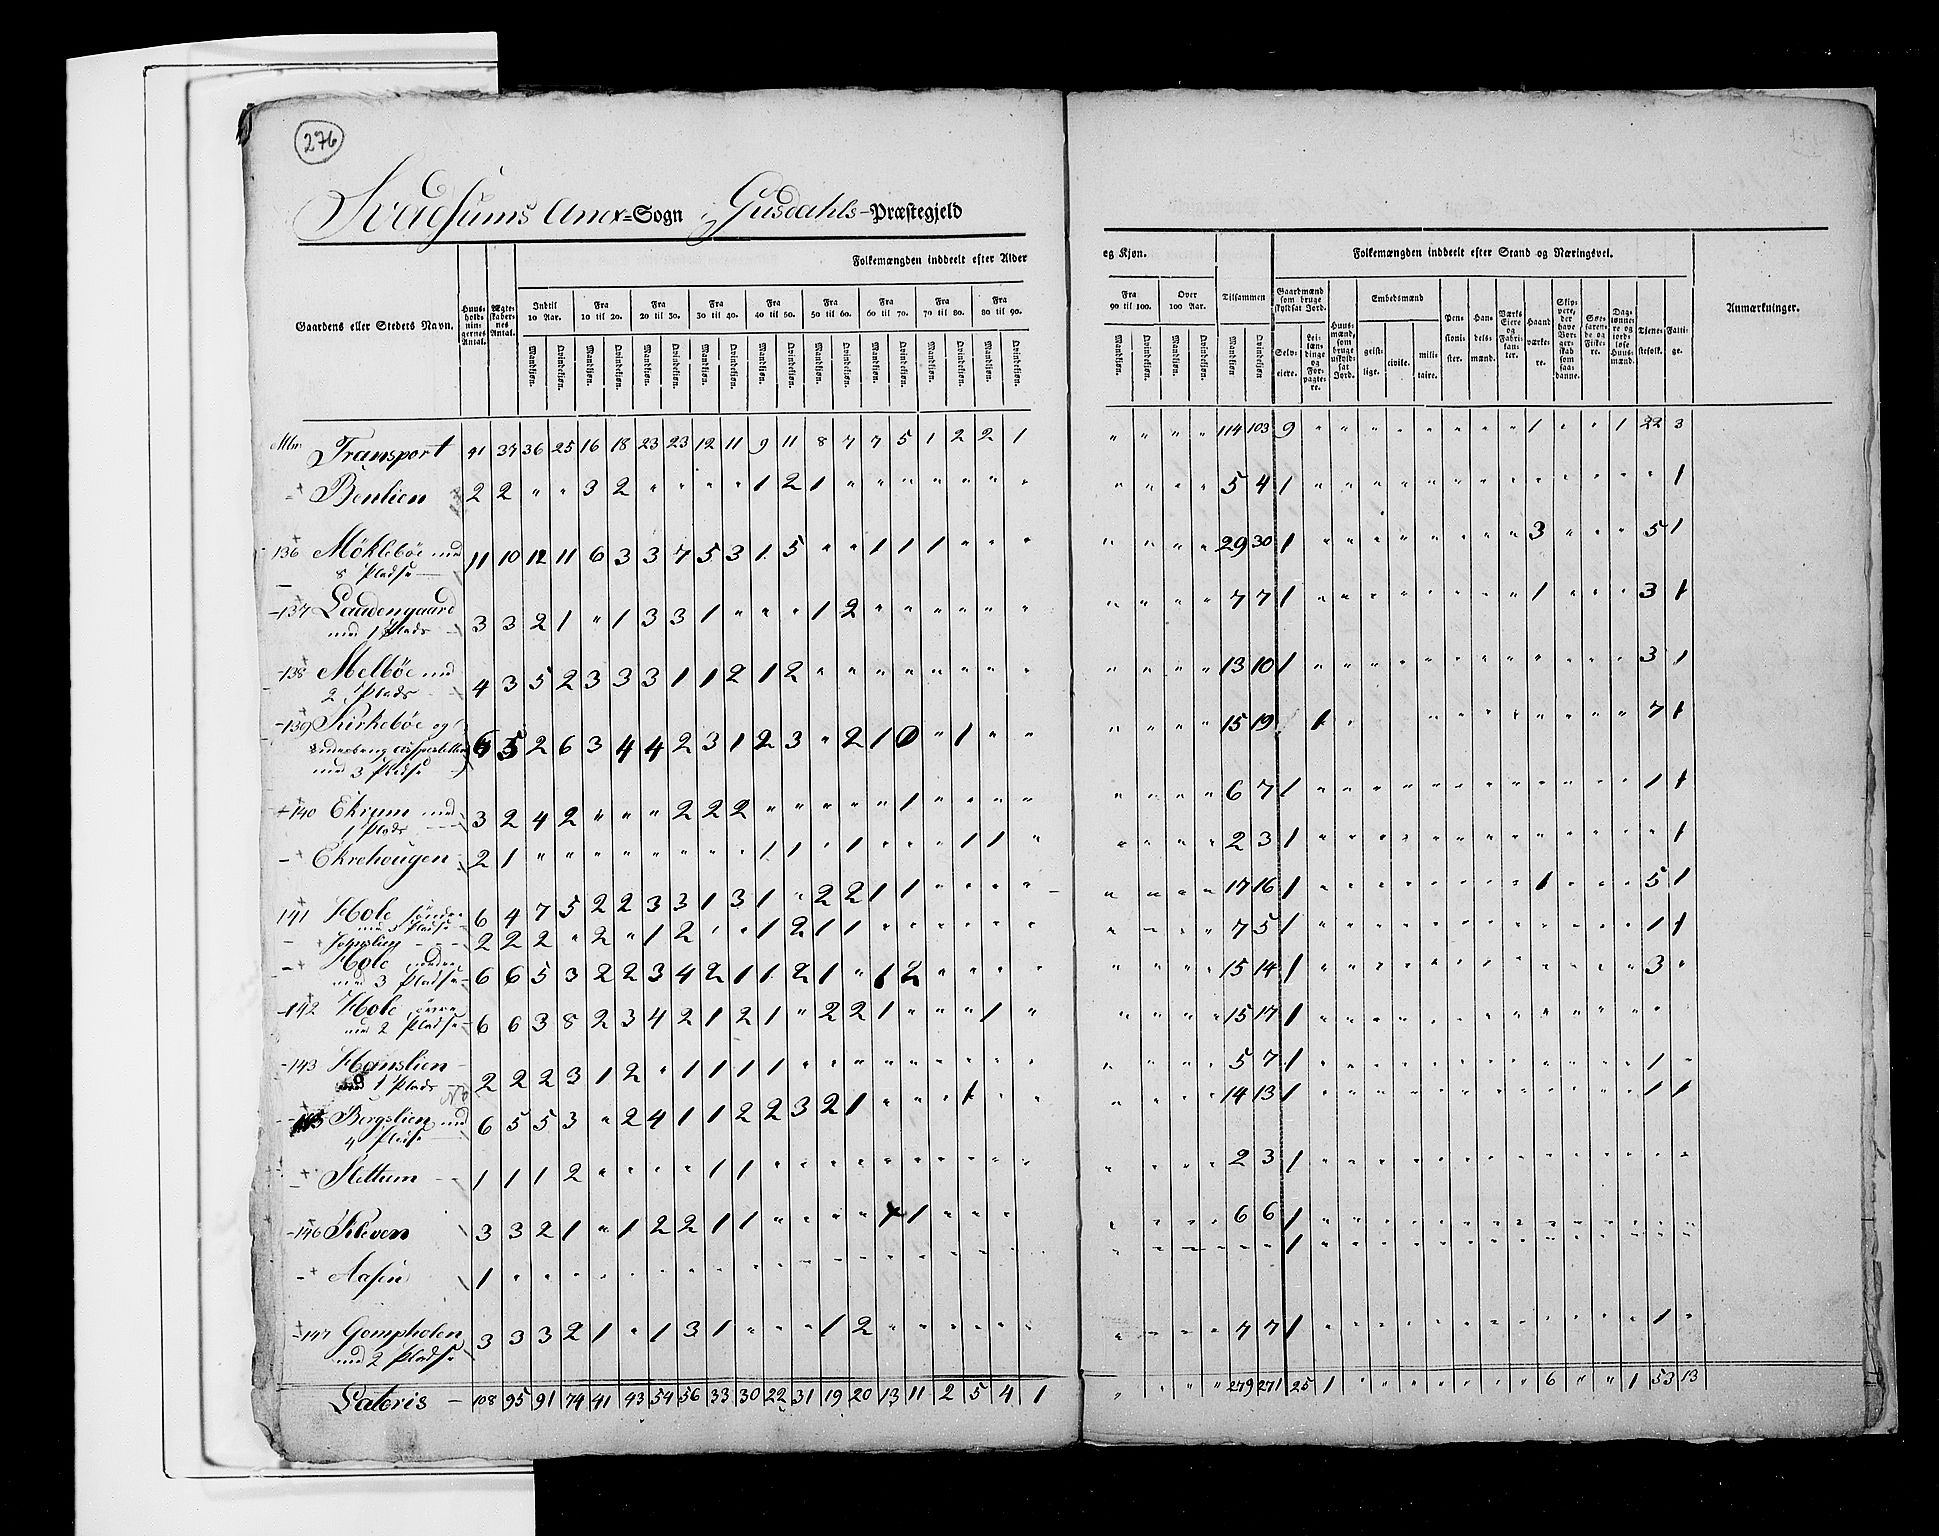 276
Svadsums Anex-Sogn i Gusdahls-Præstegjeld
Folkemængden inddeelt efter Alder
eg Kjøn.
Folkemængden inddeelt efter Stand og Næringsvei.
Gaardens eller Stedets Navn.
Huus-holdnin-gernes Antal.
Ægte-skaber-nes Antal.
Indtil 10 Aar.
Fra 10 til 20.
Fra 20 til 30.
Fra 30 til 40.
Fra 40 til 50.
Fra 50 til 60.
Fra 60 til 70.
Fra 70 til 80.
Fra 80 til 90.
Fra 90 til 100.
Over 100 Aar.
Tilsammen
Gaardmænd som bruge skyldsat Jord.
Embedsmænd
Anmærkninger.
Mandkjøn. Qvindekjøn.
Selv-eiere.
Lei-læn-dinge og For-pagte-re.
Huus-mænd, som bruge uskyld-sat Jord.
geist-lige.
civile.
mili-taire.
Pen-sioni-ster.
Han-dels-mænd.
Værks Eiere og Fabri-kan-ter.
Haand værke-re.
Skip-pere, der have Bor-ger-skab som saa-danne.
Søe-farende og Fiske-re.
Dag-lønne-re og jord-løse Huus-mænd.
Tjene-stefolk.
Fatti-ge.
Transport 41 37 36 25 16 18 23 23 12 11 9 11 8 7 7 5 1 2 2 1 " " " " 114 103 9 " " " " " " " " 1 " " 1 22 3
Benlien 2 2 " " 3 2 " " " " 1 2 1 " " " " " " " " " " " 5 4 1 " " " " " " " " " " " " " 1
136 Møklebøe med 8 Pladse 11 10 12 11 6 3 3 7 5 3 1 5 " " 1 1 1 " " " " " " " 29 30 1 " " " " " " " " 3 " " " 5 1
137 Laudengaard med 1 Plads 3 3 2 1 " 1 3 3 1 " " " 1 2 " " " " " " " " " " 7 7 1 " " " " " " " " 1 " " " 3 1
138 Melbøe med 2 Plads 4 3 5 2 3 3 3 1 1 2 1 2 " " " " " " " " " " " " 13 10 1 " " " " " " " " " " " " 3 1
139 Kirkebøe og
med 3 Pladse 6 5 2 6 3 4 4 2 3 1 2 3 " 2 1 0 " 1 " " " " " " 15 19 1 " " " " " " " " " " 7 1
140 Ekrum med 1 Plads 3 2 4 2 " " " 2 2 2 " " " " " 1 " " " " " " " " 6 7 1 " " " " " " " " " " " " 1 1
Ekrehougen 2 1 " " " " " " " " 1 1 " 1 " " " 1 1 " " " " " 2 3 1 " " " " " " " " " " " " " 1
141 Hole søndre med 3 Pladse 6 4 7 5 2 2 3 3 1 3 1 " 2 2 1 1 " " " " " " " " 17 16 1 " " " " " " " " 1 " " " 5 1
Johnslien 2 2 2 " 2 " 1 2 " " 1 2 1 1 " " " " " " " " " " 7 5 1 " " " " " " " " " " " " 1 1
Hole nordre med 3 Pladse 6 6 5 3 2 2 3 4 2 1 1 2 1 " 1 2 " " " " " " " " 15 14 1 " " " " " " " " " " " " 3 "
142 Hole øvre med 2 Pladse 6 6 3 8 2 3 4 2 1 2 1 " 2 2 1 " " " 1 " " " " " 15 17 1 " " " " " " " " " " " " " "
143 Hanslien 1 Plads 2 2 2 3 1 2 " 1 1 1 1 " " " " " " " " " " " " " 5 7 1 " " " " " " " " " " " " 1 "
145 Bergslien med 4 Pladse 6 5 5 3 " 2 4 1 1 2 2 3 2 1 " " " 1 " " " " " " 14 13 1 " " " " " " " " " " " " 1 1
Slettum 1 1 1 2 " " " " 1 1 " " " " " " " " " " " " " " 2 3 1 " " " " " " " " " " " " " "
146 Kleven 3 3 2 1 " 1 2 2 1 1 " " " " 1 1 " " " " " " " " 6 6 1 " " " " " " " " " " " " " "
Aasen 1 " " " " " " " " " " " " " " " " " " " " " " " " " 1 " " " " " " " " " " " " " "
147 Gompholen med 2 Pladse 3 3 3 2 1 " 1 3 1 " " " 1 2 " " " " " " " " " " 7 7 1 " " " " " " " " " " " " 1 "
Lateris 108 95 91 74 41 43 54 56 33 30 22 31 19 20 13 11 2 5 4 1 " " " " 279 271 25 1 " " " " " " " 6 " " 1 53 13